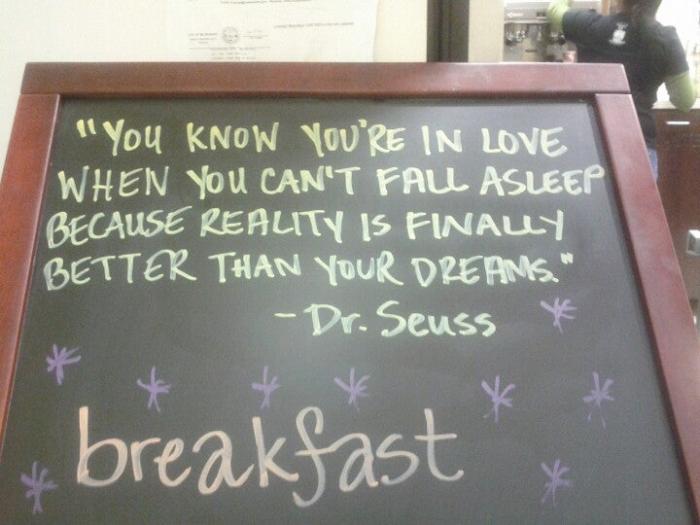 "YOU KNOW YOU'RE IN LOVE
WHEN YOU CAN'T FALL ASLEEP
BECAUSE REALITY IS FINALLY
BETTER THAN YOUR DREAMS."
- Dr. Seuss
breakfast